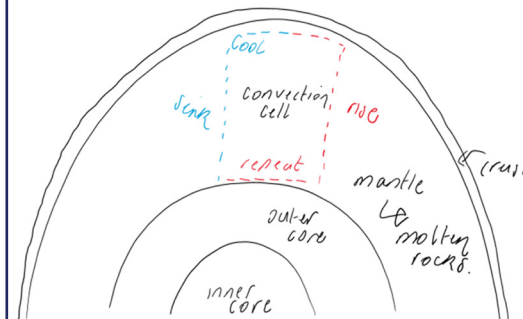 cool
convection
cell
sink
rise
repeat
crus
mantle
↳ molten
rocks.
outer
core
inner
core